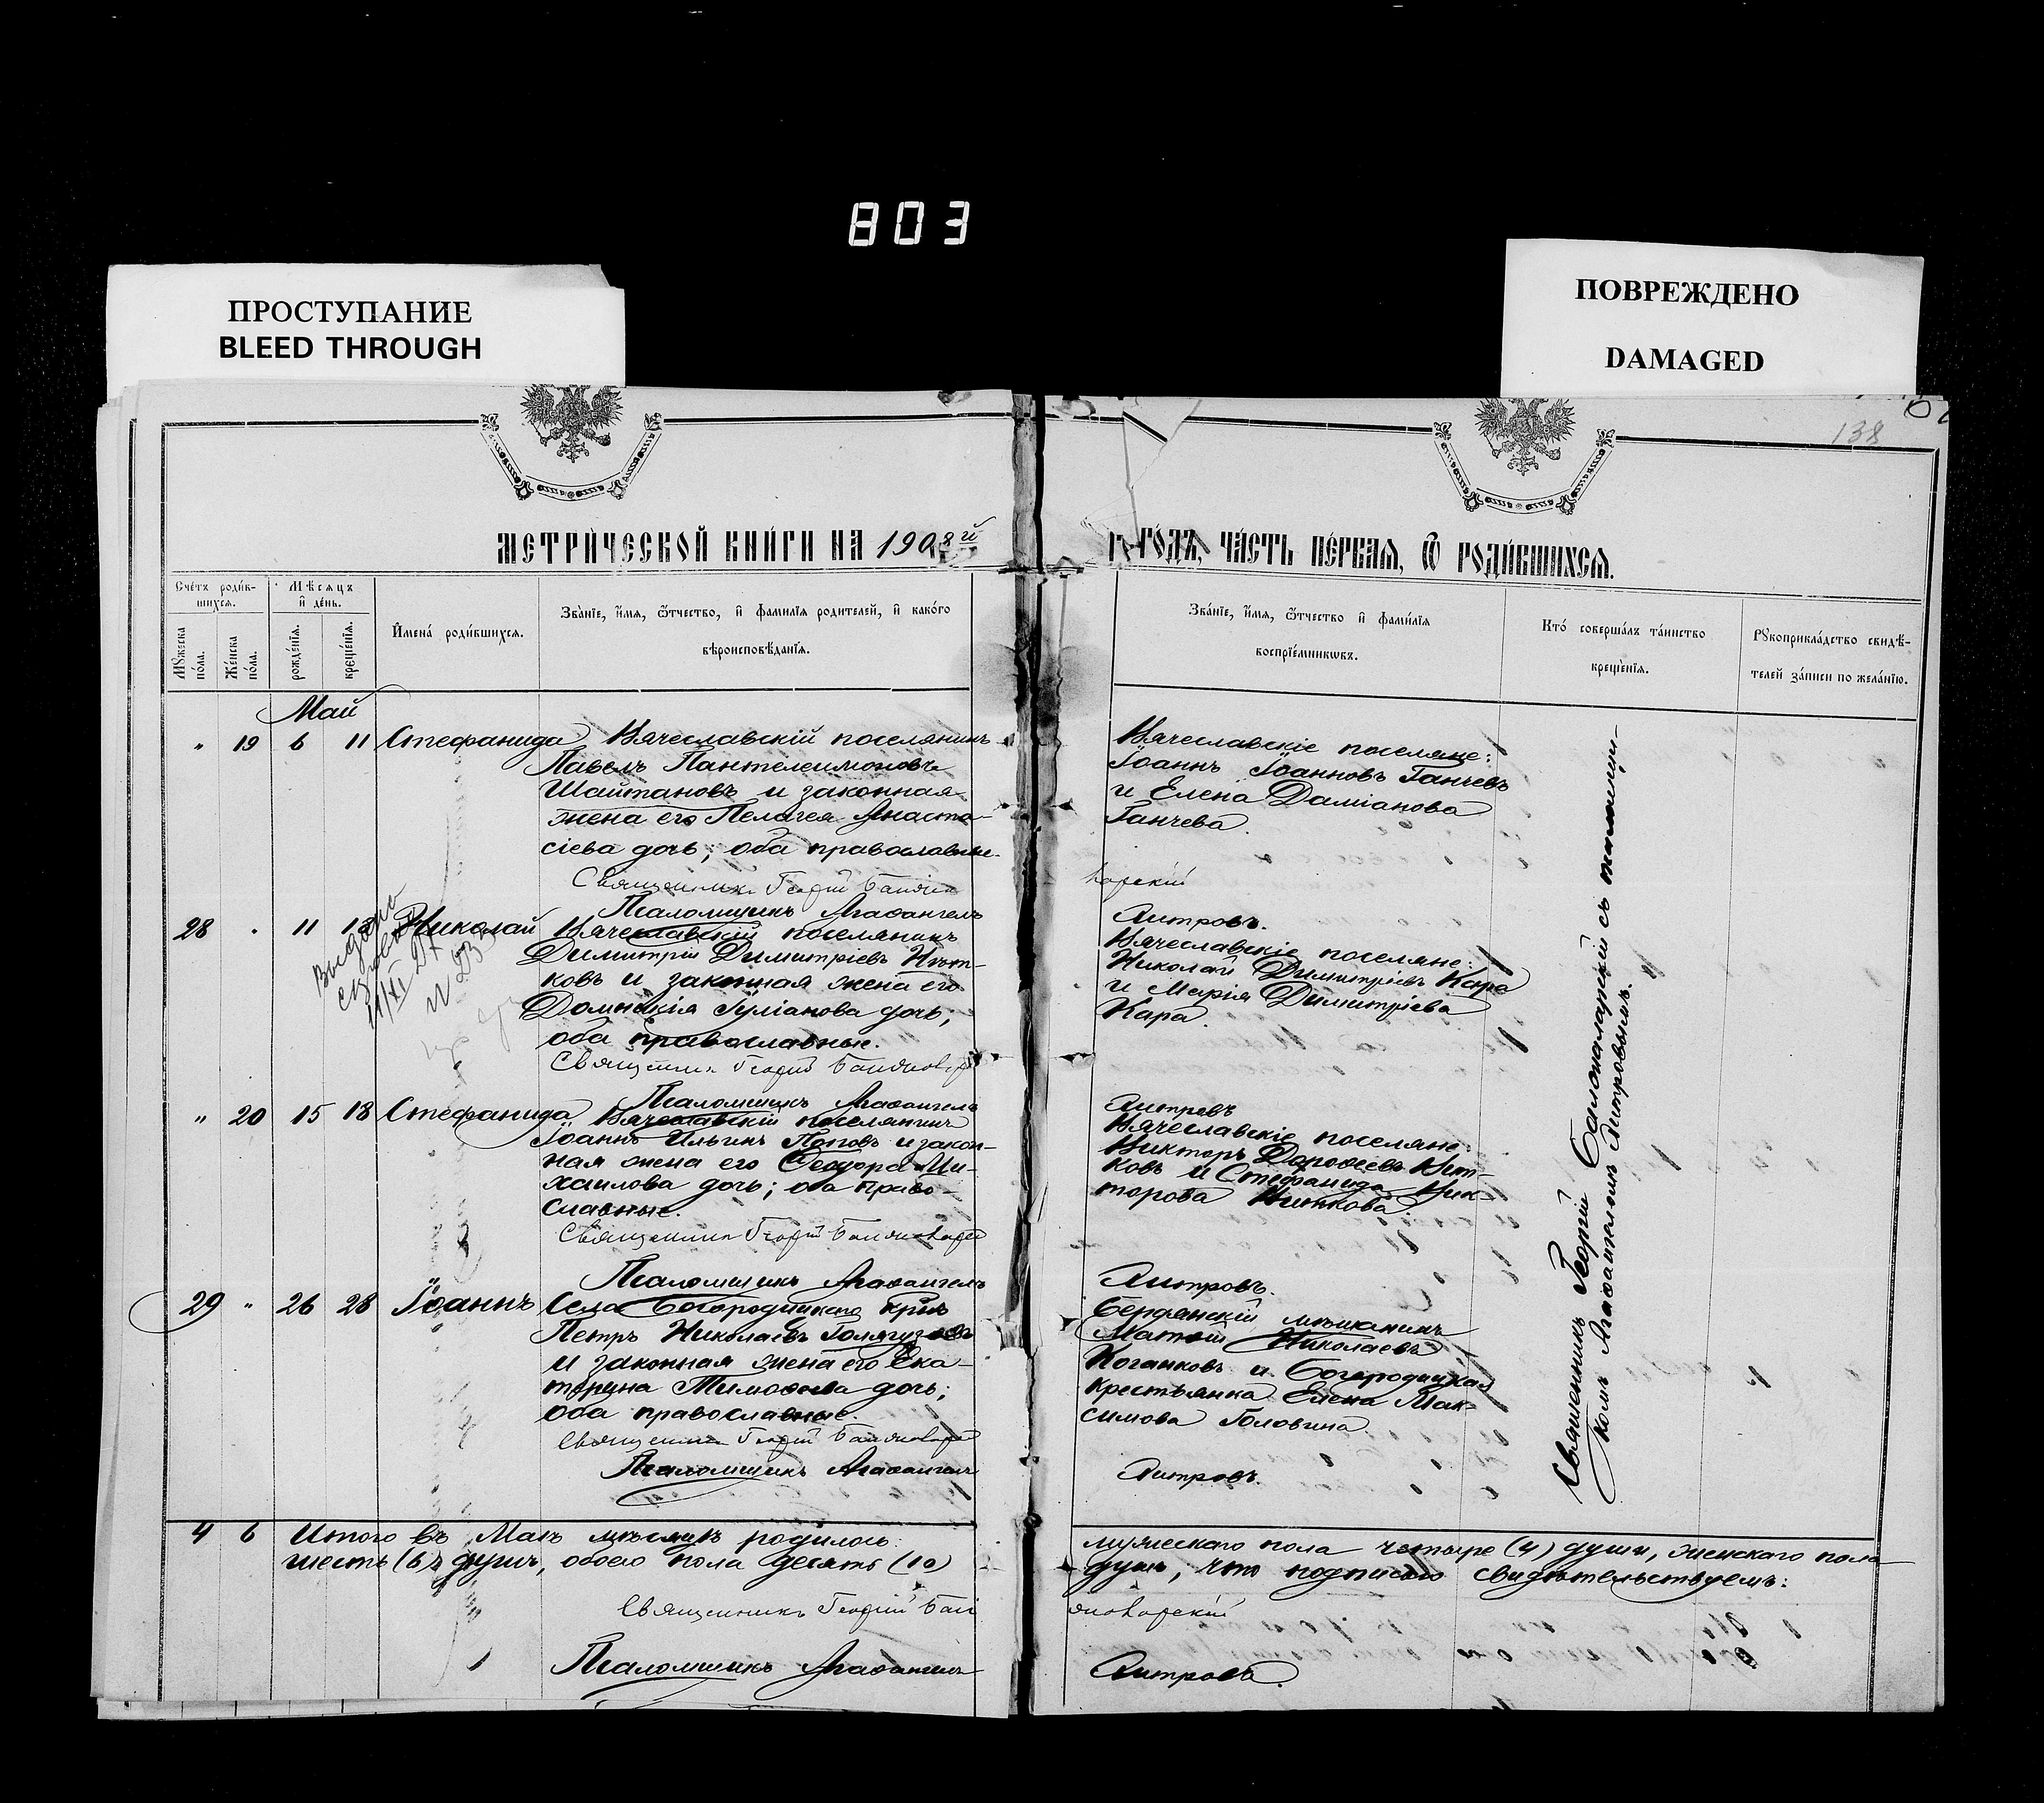 803
ПРОСТУПАНИЕ
BLEED THROUGH
ПОВРЕЖДЕНО
DAMAGED
138
МЕТРИ́ЧЕСКОЙ КНИ́ГИ НА 1908 й
ГО́ДЪ, ЧА́СТЬ ПЕ́РВАЯ, Ѿ РОДИ́ВШИХСЯ.
Сче́тъ роди́в-
шихся.
Мѣ́сяцъ
и де́нь.
Му́жеска по́ла.
Же́нска по́ла.
рожде́нія.
креще́нія.
Имена́ роди́вшихся.
Зва́ніе, и́мя, ѻ́тчество, и фами́лія роди́телей, и како́го
вѣроисповѣ́данія.
Зва́ніе, и́мя, ѻ́тчество и фами́лія
воспріе́мниковъ.
Кто́ соверша́лъ та́инство
креще́нія.
Рукоприкла́дство свидѣ́-
телей за́писи по жела́нію.
Май
" 19 6 11 Стефанида
Вячеславскій поселянинъ
Павелъ Пантелеимоновъ
Шайтановъ и законная
жена его Пелагея Анаста-
сіева дочь; оба православные.
Священникъ Георгій
Псаломщикъ Агаѳангелъ
Вячеславскіе поселяне:
Іоаннъ Іоанновъ Ганчевъ
и Елена Даміанова
Ганчева.
28 " 11 18 Николай
Выдано
Вячеславскій поселянинъ
Димитрій Димитріевъ
ковъ и законная жена его
Домникія Іуліанова дочь;
оба православные.
Священникъ Георгій
Псаломщикъ Агаѳангелъ
Вячеславскіе поселяне:
Николай Димитріевъ Кара
и Марія Димитріева
Кара.
" 20 15 18 Стефанида
Вячеславскій поселянинъ
Іоаннъ Ильинъ Поповъ и закон-
ная жена его Ѳеодора Ми-
хаилова дочь; оба право-
славные.
Священникъ Георгій
Псаломщикъ Агаѳангелъ
Вячеславскіе поселяне:
Викторъ Дороѳеевъ
ковъ и Стефанида Вик-
торова
29 " 26 28 Іоаннъ
Села Богородицкаго
Петръ Николаевъ
и законная жена его Ека-
терина Тимоѳеева дочь;
оба православные.
Священникъ Георгій
Псаломщикъ Агаѳангелъ
Бердянскій мѣщанинъ
Матѳій Николаевъ
Коганковъ и Богородицкая
крестьянка Елена Мак-
симова Головина.
Священникъ Георгій съ псаломщи-
комъ Агаѳангеломъ
4 6 Итого въ Маѣ мѣсяцѣ родилось:
мужескаго пола четыре (4) души, женскаго пола
шесть (6) душъ, обоего пола десять (10)
душъ, что подписью свидѣтельствуемъ:
Священникъ Георгій
Псаломщикъ Агаѳангелъ